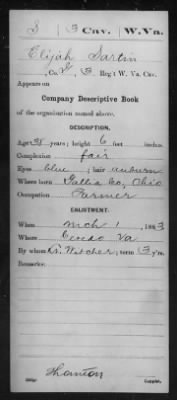 S 3 Cav. W.Va.
Elijah Sartin
Co. , 3 Reg't W. Va. Cav.
Appears on
Company Descriptive Book
of the organization named above.
DESCRIPTION.
Age 38 years; height 6 feet inches.
Complexion fair
Eyes blue; hair auburn
Where born Gallia Co, Ohio
Occupation Farmer
ENLISTMENT.
When Mch 1, 1863
Where Ceredo Va
By whom Witcher; term 3 y'rs.
Remarks:
Copyist.